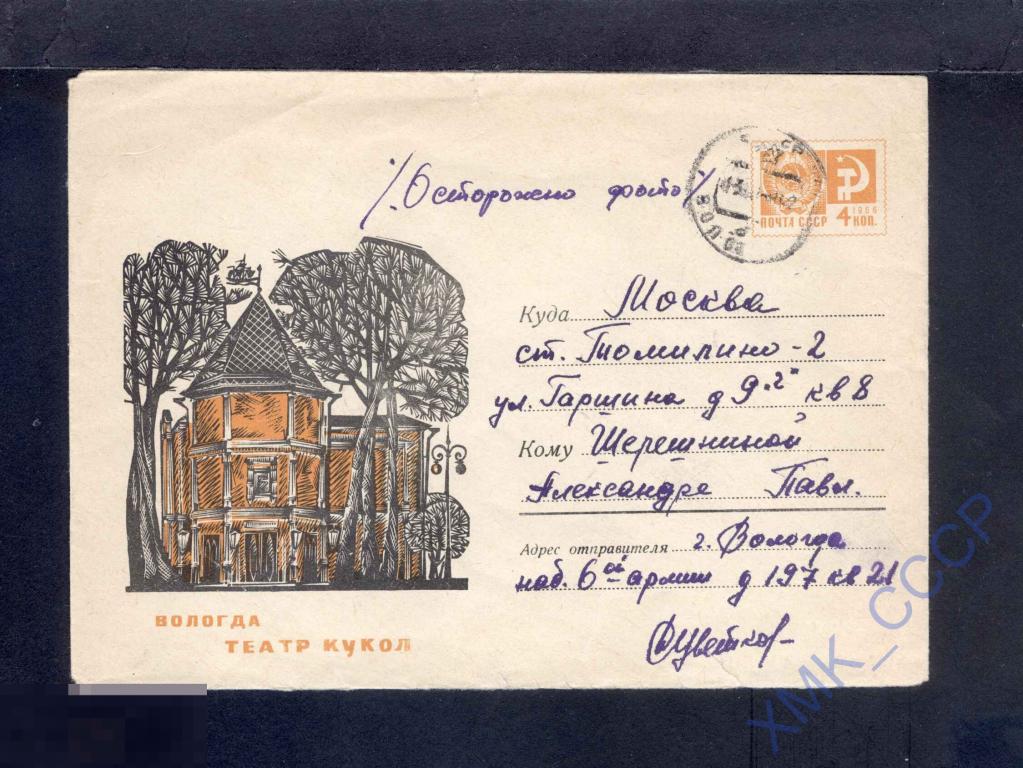 /Осторожно фото/
ПОЧТА СССР
1966
4 КОП.
Куда Москва
ст. Томилино-2
ул. Гаршина д 9"г" кв 8
Кому Шерешниной
Александре Павл.
Адрес отправителя г. Вологда
наб. 6ой армии д 197 кв 21
Цветков
ВОЛОГДА
ТЕАТР КУКОЛ
ХМК_СССР